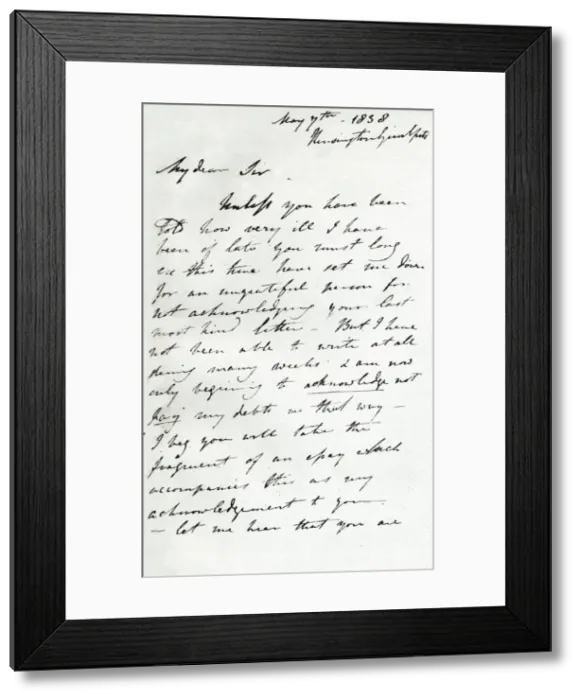 May 7th - 1838
Kensington
My dear Sir
Unless you have been
told how very ill I have
been of late you must long
ere this time have set me down
for an ungrateful person for
not acknowledging your last
most kind letter - But I have
not been able to write at all
during many weeks & am now
only beginning to acknowledge not
pay my debts in that way -
I beg you will take the
fragment of an essay which
accompanies this as my
acknowledgement to you
- let me hear that you are